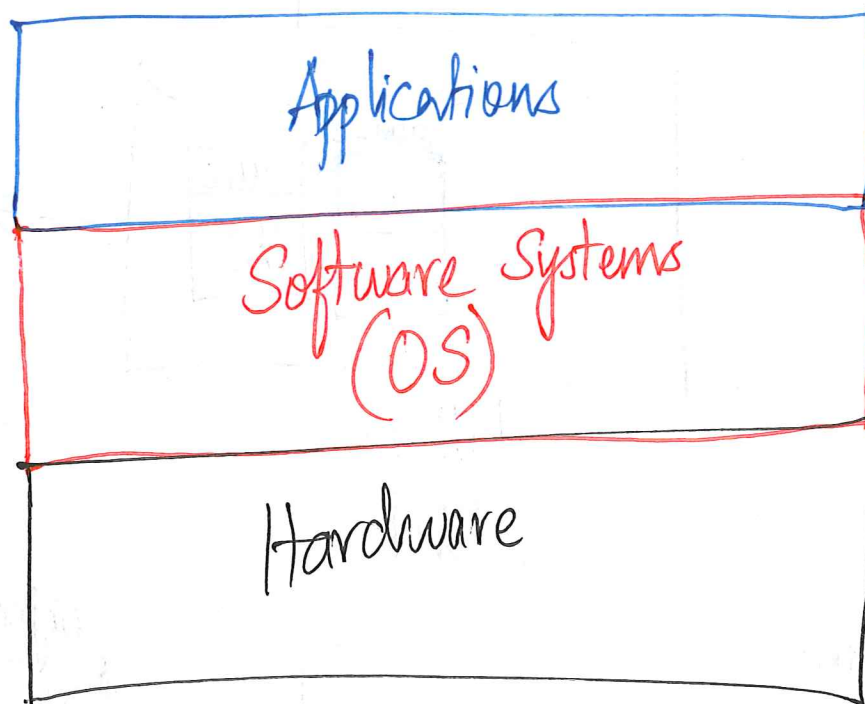 Applications
Software Systems
(OS)
Hardware